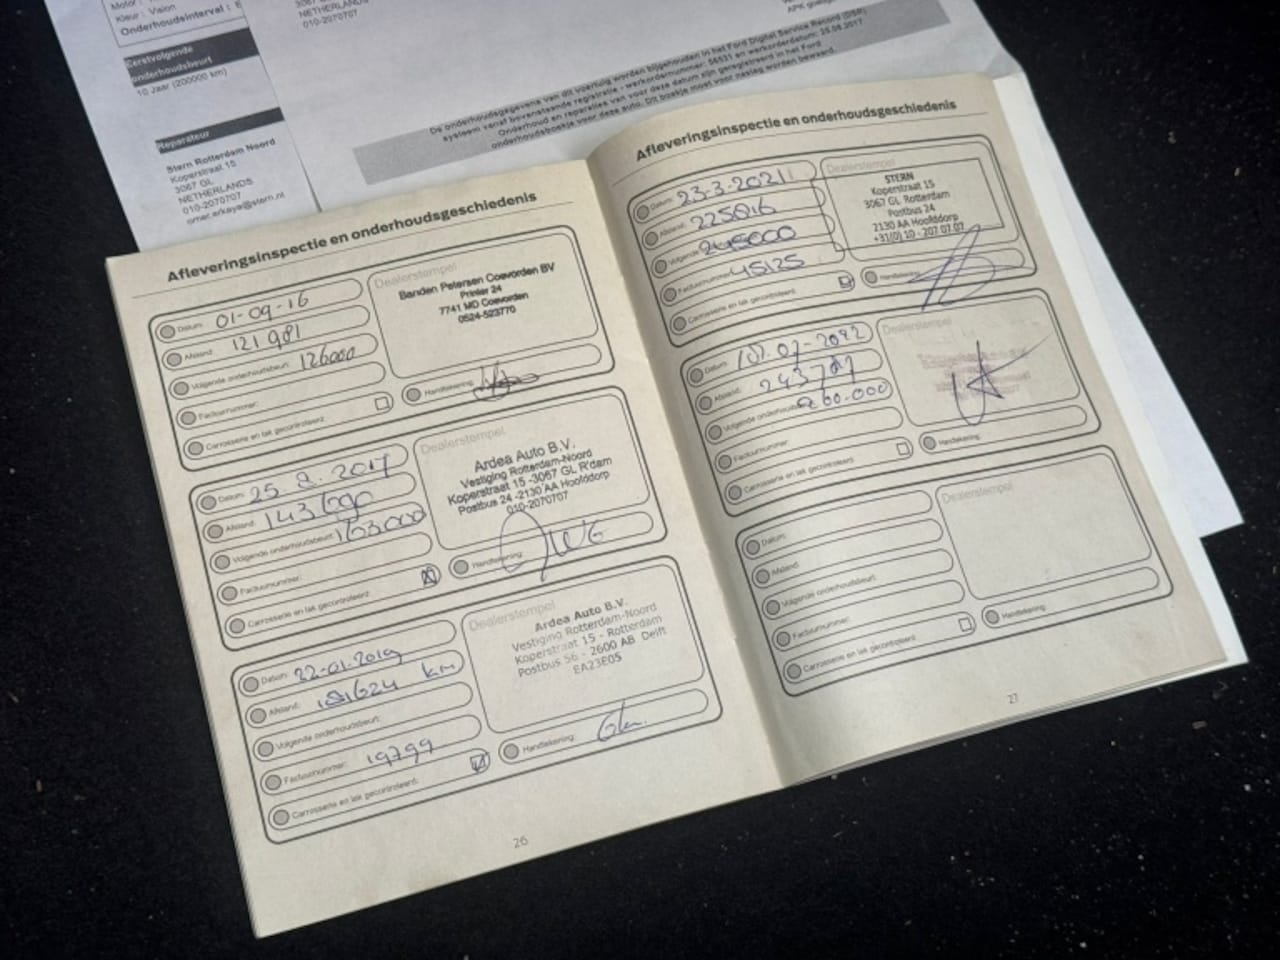 Motor :
Kleur : Vision
Onderhoudsinterval :
Eerstvolgende
onderhoudsbeurt
10 Jaar (200000 km)
Reparateur
Stern Rotterdam Noord
Koperstraat 15
3067 GL
NETHERLANDS
010-2070707
omer.erkaya@stern.nl
NETHERLANDS
010-2070707
De onderhoudsgegevens van dit voertuig worden bijgehouden in het Ford Digital Service Record (DSR)
systeem vanaf bovenstaande registratie - werkordernummer: 56531 en werkorderdatum: 25.08.2017.
Onderhoud en reparaties van voor deze datum zijn geregistreerd in het Ford
onderhoudsboekje voor deze auto. Dit boekje moet voor naslag worden bewaard.
Afleveringsinspectie en onderhoudsgeschiedenis
Datum: 01-09-16
Afstand: 121 981
Volgende onderhoudsbeurt: 126000
Factuurnummer:
Carrosserie en lak gecontroleerd:
Dealerstempel
Banden Petersen Coevorden BV
Printer 24
7741 MD Coevorden
0524-523770
Handtekening:
Datum: 25.8.2017
Afstand:
Volgende onderhoudsbeurt: 163000
Factuurnummer:
Carrosserie en lak gecontroleerd:
Dealerstempel
Ardea Auto B.V.
Vestiging Rotterdam-Noord
Koperstraat 15 -3067 GL R'dam
Postbus 24 -2130 AA Hoofddorp
010-2070707
Handtekening:
Datum: 22-01-2019
Afstand: 181624 km
Volgende onderhoudsbeurt:
Factuurnummer: 19799
Carrosserie en lak gecontroleerd:
Dealerstempel
Ardea Auto B.V.
Vestiging Rotterdam-Noord
Koperstraat 15 - Rotterdam
Postbus 56 - 2600 AB Delft
EA23E05
Handtekening:
26
Afleveringsinspectie en onderhoudsgeschiedenis
Datum: 23-3-2021
Afstand: 225016
Volgende 245000
Factuurnummer: 45125
Carrosserie en lak gecontroleerd:
Dealerstempel
STERN
Koperstraat 15
3067 GL Rotterdam
Postbus 24
2130 AA Hoofddorp
+31(0) 10 - 207 07 07
Handtekening:
Datum:
Afstand:
Volgende 260.000
Factuurnummer:
Carrosserie en lak gecontroleerd:
Dealerstempel
Handtekening:
Datum:
Afstand:
Volgende onderhoudsbeurt:
Factuurnummer:
Carrosserie en lak gecontroleerd:
Dealerstempel
Handtekening:
27